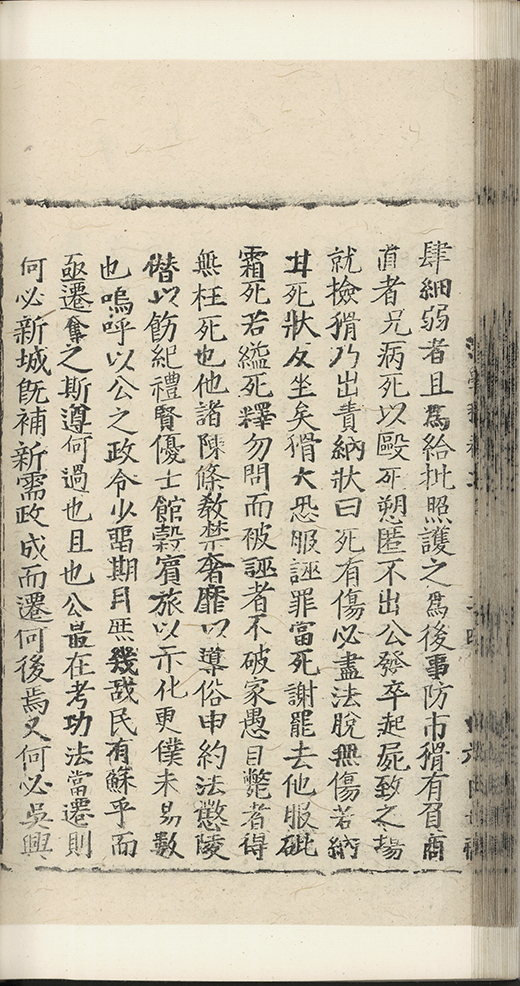 肆細弱者且爲給批照護之爲後事防市猾有負商
直者兄病死以毆死愬匿不出公發卒起屍致之場
就撿猾乃出責納狀曰死有傷必盡法脫無傷若納
其死狀反坐矣猾大恐服誣罪當死謝罷去他服砒
霜死若縊死釋勿問而被誣者不破家愚自斃者得
無枉死也他諸陳條敎禁奢靡以導俗申約法懲陵
僣以飭紀禮賢優士館穀賓旅以示化更僕未易數
也嗚呼以公之政令少畱期月無幾哉民有蘇乎而
亟遷奪之斯遵何過也且也公最在考功法當遷則
何必新城旣補新需政成而遷何後焉又何必吳興